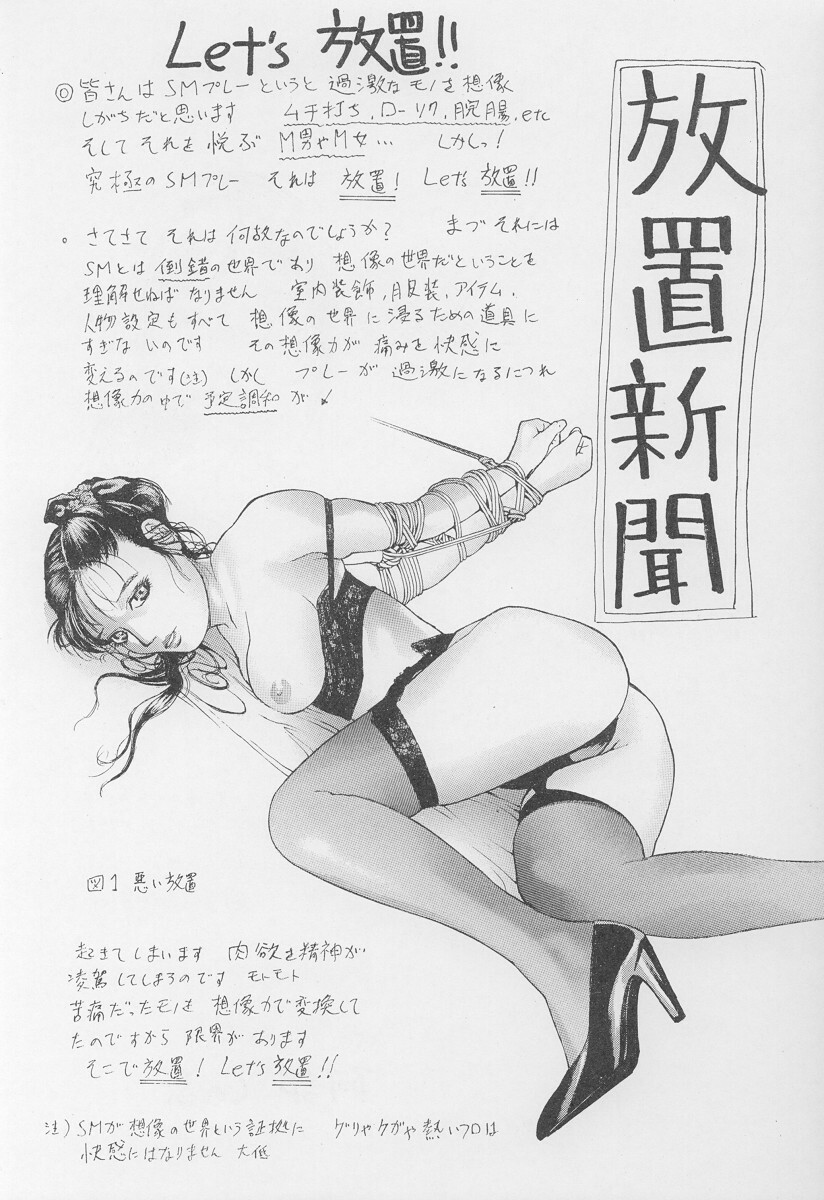 Let's 放置!!
放置新聞
◎ 皆さんは SMプレーというと 過激なモノを想像
しがちだと思います ムチ打ち,ローソク,浣腸,etc
そしてそれを悦ぶ M男やM女… しかしっ!
究極のSMプレー それは 放置! Let's 放置!!
。さてさて それは何故なのでしょうか? まづ それには
SMとは倒錯の世界であり 想像の世界だということを
理解せねば なりません 室内装飾,服装,アイテム,
人物設定もすべて 想像の世界に浸るための道具に
すぎないのです その想像力が 痛みを快感に
変えるのです(注) しかし プレーが 過激になるにつれ
想像力の中で 予定調和が
図1 悪い放置
起きてしまいます 肉欲を精神が
凌駕してしまうのです モトモト
苦痛だったモノを 想像力で変換して
たのですから 限界があります
そこで放置! Let's 放置!!
注) SMが想像の世界という証拠に ゲリやケガや熱いフロは
快感にはなりません 大低